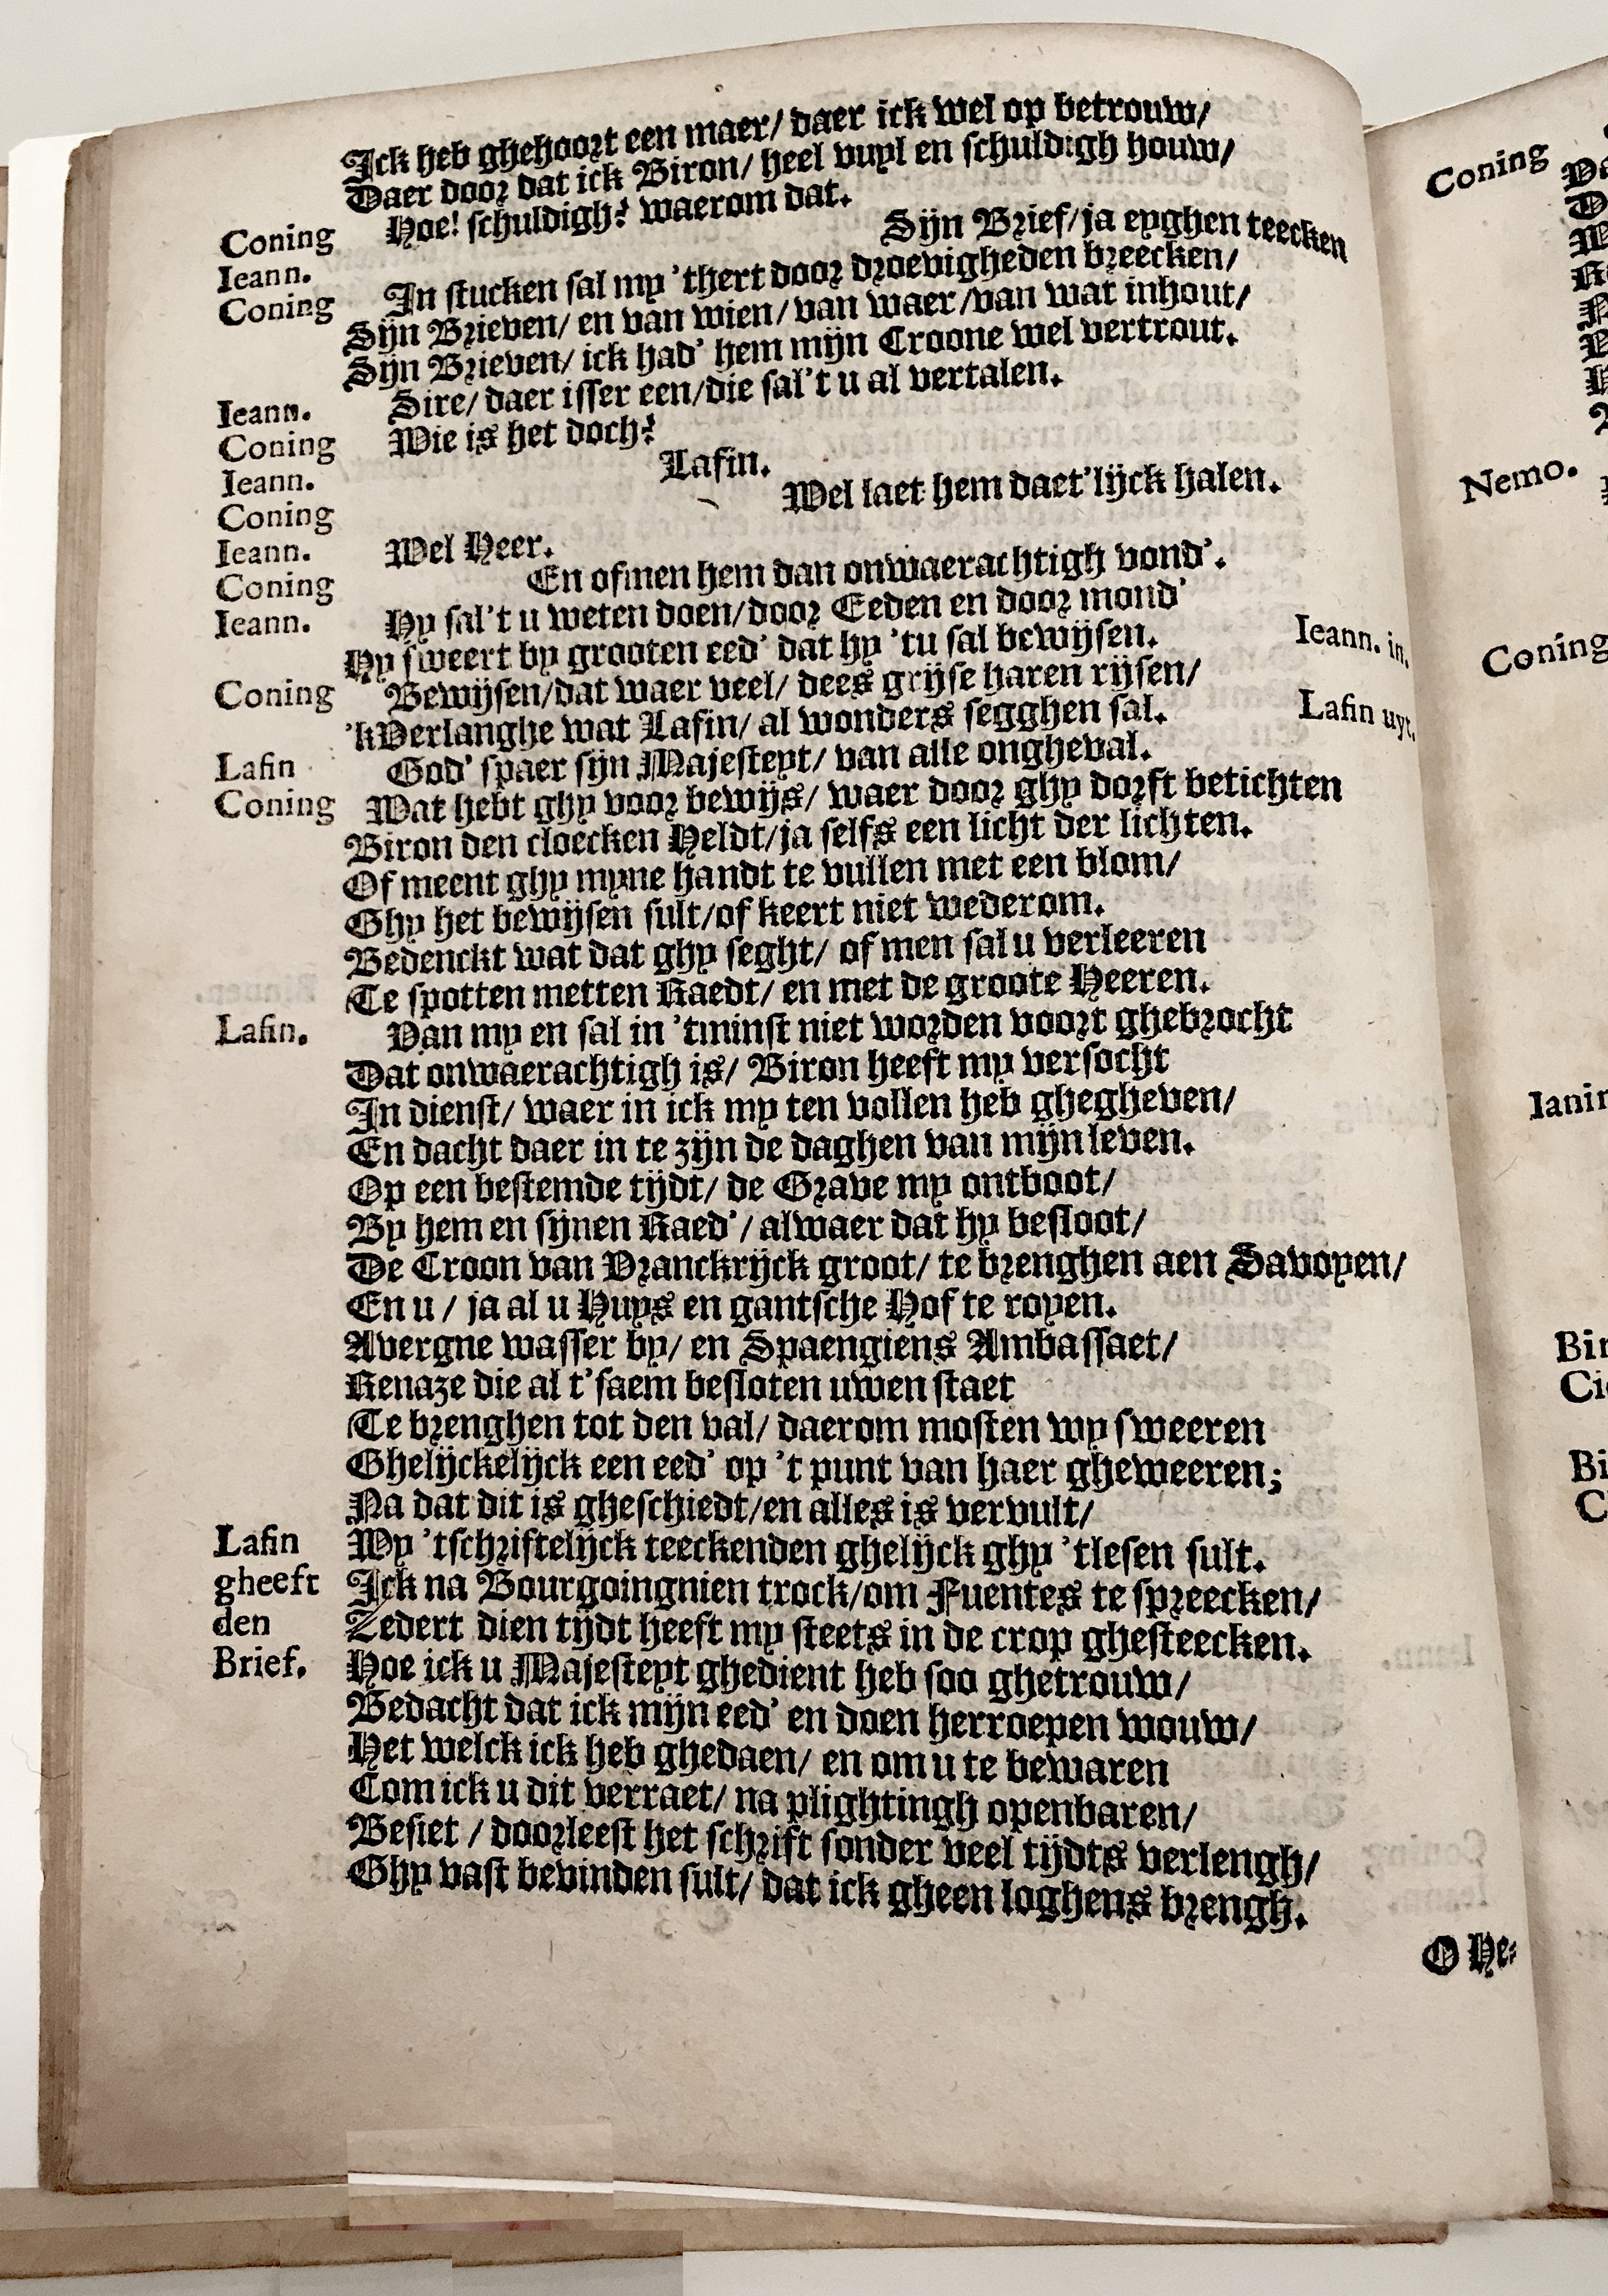 Ick heb ghehoort een maer/ daer ick wel op betrouw/
Daer door dat ick Biron/ heel vuyl en schuldigh houw/
Coning Hoe! schuldigh? waerom dat.
Ieann. Sijn Brief/ja eyghen teecken
Coning In stucken sal my 'thert door droevigheden breecken/
Sijn Brieven/ en van wien/ van waer/van wat inhout/
Sijn Brieven/ ick had' hem mijn Croone wel vertrout.
Ieann. Sire/ daer isser een/die sal't u al vertalen.
Coning Wie is het doch?
Ieann. Lafin.
Coning Wel laet hem daet'lijck halen.
Ieann. Wel Heer.
Coning En ofmen hem dan onwaerachtigh vond'.
Ieann. Hy sal't u weten doen/door Eeden en door mond'
Hy sweert by grooten eed' dat hy 'tu sal bewijsen. Ieann. in.
Coning Bewijsen/dat waer veel/ dees grijse haren rijsen/
'kVerlanghe wat Lafin/ al wonders segghen sal. Lafin uyt.
Lafin God' spaer sijn Majesteyt/ van alle ongheval.
Coning Wat hebt ghy voor bewijs/ waer door ghy dorft betichten
Biron den cloecken Heldt/ja selfs een licht der lichten.
Of meent ghy myne handt te vullen met een blom/
Ghy het bewijsen sult/of keert niet wederom.
Bedenckt wat dat ghy seght/ of men sal u verleeren
Te spotten metten Raedt/ en met de groote Heeren.
Lafin. Van my en sal in 'tminst niet worden voort ghebrocht
Dat onwaerachtigh is/ Biron heeft my versocht
In dienst/ waer in ick my ten vollen heb ghegheven/
En dacht daer in te zijn de daghen van mijn leven.
Op een bestemde tijdt/ de Grave my ontboot/
By hem en sijnen Raed'/ alwaer dat hy besloot/
De Croon van Vranckrijck groot/ te brenghen aen Savoyen/
En u / ja al u Huys en gantsche Hof te royen.
Avergne wasser by/ en Spaengiens Ambassaet/
Renaze die al t'saem besloten uwen staet
Te brenghen tot den val/ daerom mosten wy sweeren
Ghelijckelijck een eed' op 't punt van haer gheweeren;
Na dat dit is gheschiedt/en alles is vervult/
Lafin Wy 'tschriftelijck teeckenden ghelijck ghy 'tlesen sult.
gheeft Ick na Bourgoingnien trock/om Fuentes te spreecken/
den Zedert dien tijdt heeft my steets in de crop ghesteecken.
Brief. Hoe ick u Majesteyt ghedient heb soo ghetrouw/
Bedacht dat ick mijn eed' en doen herroepen wouw/
Het welck ick heb ghedaen/ en om u te bewaren
Com ick u dit verraet/ na plightingh openbaren/
Besiet / doorleest het schrift sonder veel tijdts verlengh/
Ghy vast bevinden sult/ dat ick gheen loghens brengh.
O He-
Coning
Nemo.
Coning